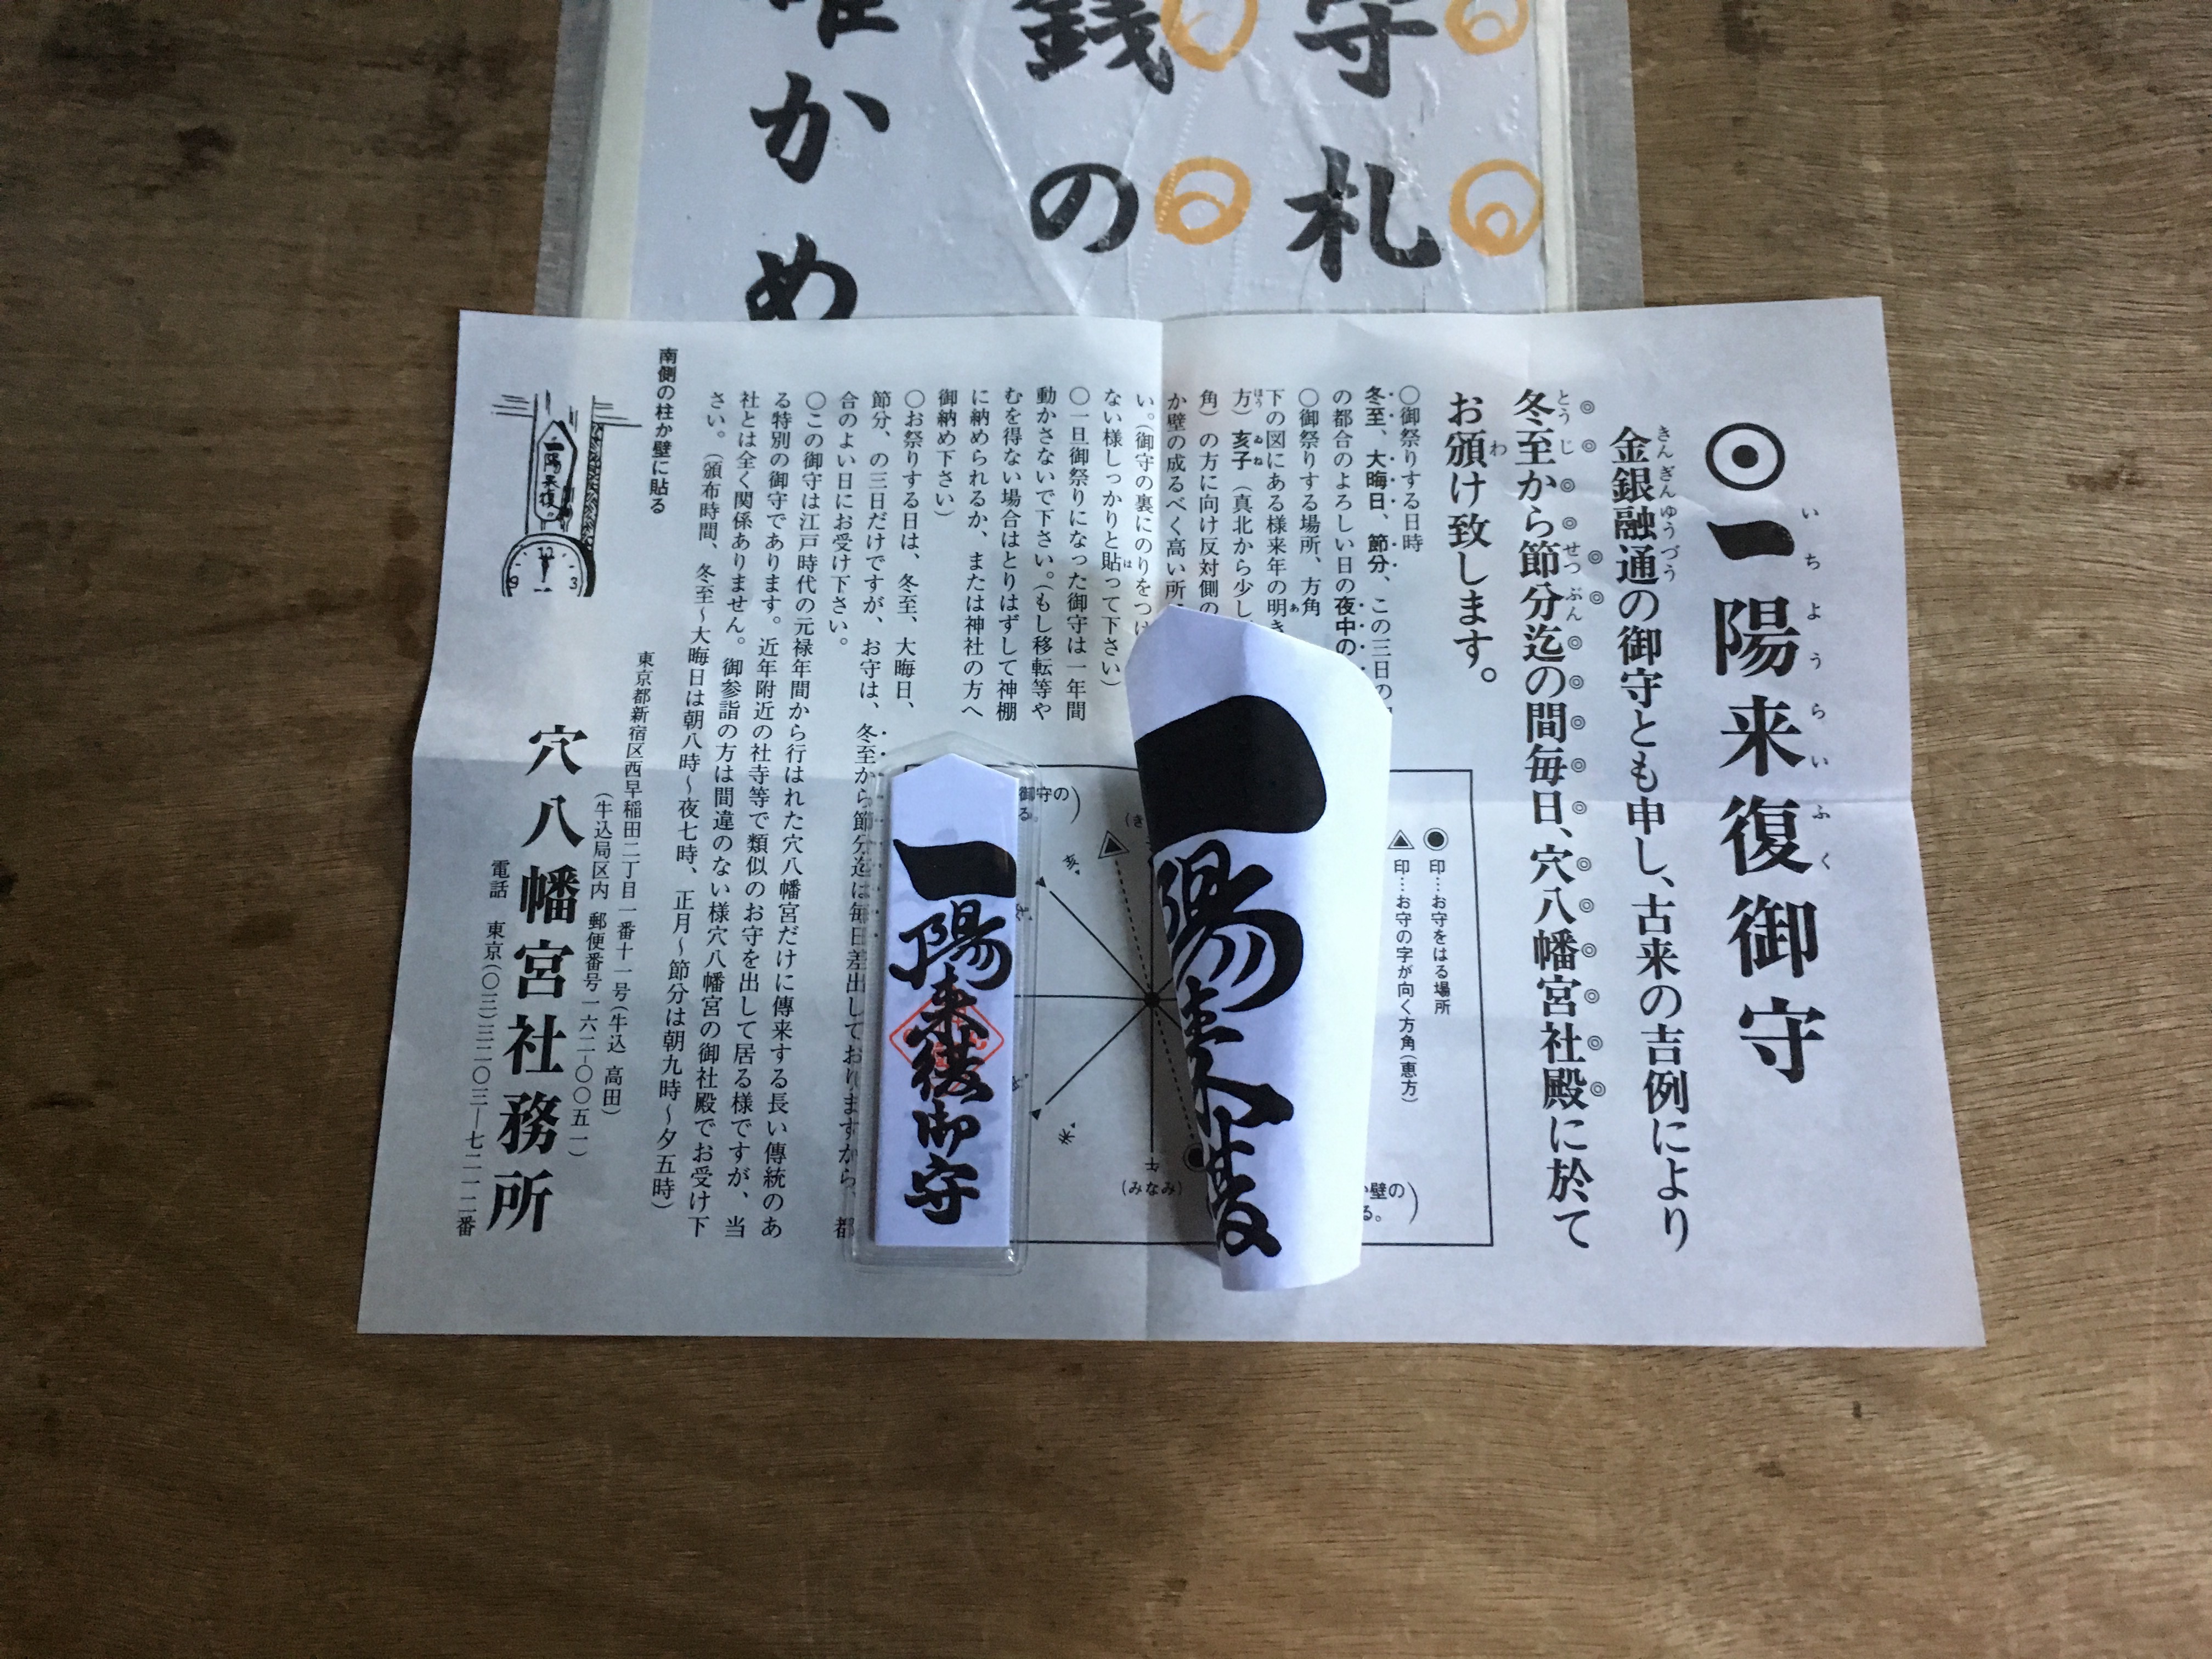 守札
銭の
確かめ
一陽来復御守
いちようらいふく
金銀融通の御守とも申し、古来の吉例により
きんぎんゆうづう
冬至から節分迄の間毎日、穴八幡宮社殿に於て
とうじ せつぶん
お頒け致します。
わ
〇御祭りする日時
冬至、大晦日、節分、この三日の
の都合のよろしい日の夜中の
〇御祭りする場所、方角
下の図にある様来年の明き
方)亥子(真北から少し
角)の方に向け反対側の
か壁の成るべく高い所
い。(御守の裏にのりをつけ
ない様しっかりと貼って下さい)
〇一旦御祭りになった御守は一年間
動かさないで下さい。(もし移転等や
むを得ない場合はとりはずして神棚
に納められるか、または神社の方へ
御納め下さい)
〇お祭りする日は、冬至、大晦日、
節分、の三日だけですが、お守は、冬至から節分迄は毎日差出しておりますから、都
合のよい日にお受け下さい。
〇この御守は江戸時代の元禄年間から行はれた穴八幡宮だけに傳来する長い傳統のあ
る特別の御守であります。近年附近の社寺等で類似のお守を出して居る様ですが、当
社とは全く関係ありません。御参詣の方は間違のない様穴八幡宮の御社殿でお受け下
さい。(頒布時間、冬至〜大晦日は朝八時〜夜七時、正月〜節分は朝九時〜夕五時)
印…お守をはる場所
印…お守の字が向く方角(恵方)
か壁の
る。)
御守の
る。)
(き
亥
(みなみ)
一陽来復
一陽来復御守
南側の柱か壁に貼る
一陽来復
12
3
9
東京都新宿区西早稲田二丁目一番十一号(牛込 高田)
(牛込局区内 郵便番号一六二-〇〇五一)
穴八幡宮社務所
電話 東京(〇三)三二〇三-七二一二番